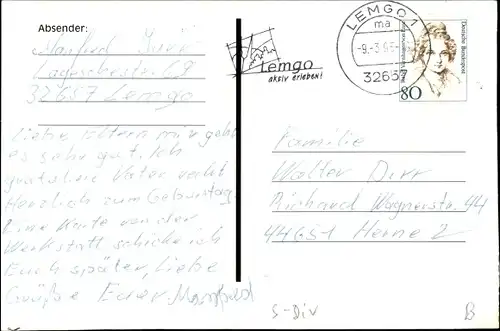 Absender:
Manfred
32657 Lemgo
Liebe Eltern mir geht
es sehr gut. Ich
gratuliere Vater recht
Herzlich zum Geburtstag.
Eine Karte von der
Werkstatt schicke ich
Euch später, Liebe
Grüße Euer Manfred
Lemgo
aktiv erleben!
LEMGO 1
ma
3265
Deutsche Bundespost
80
Familie
Walter Dirr
Richard Wagnerstr. 44
44651 Herne 2
S-Div
B